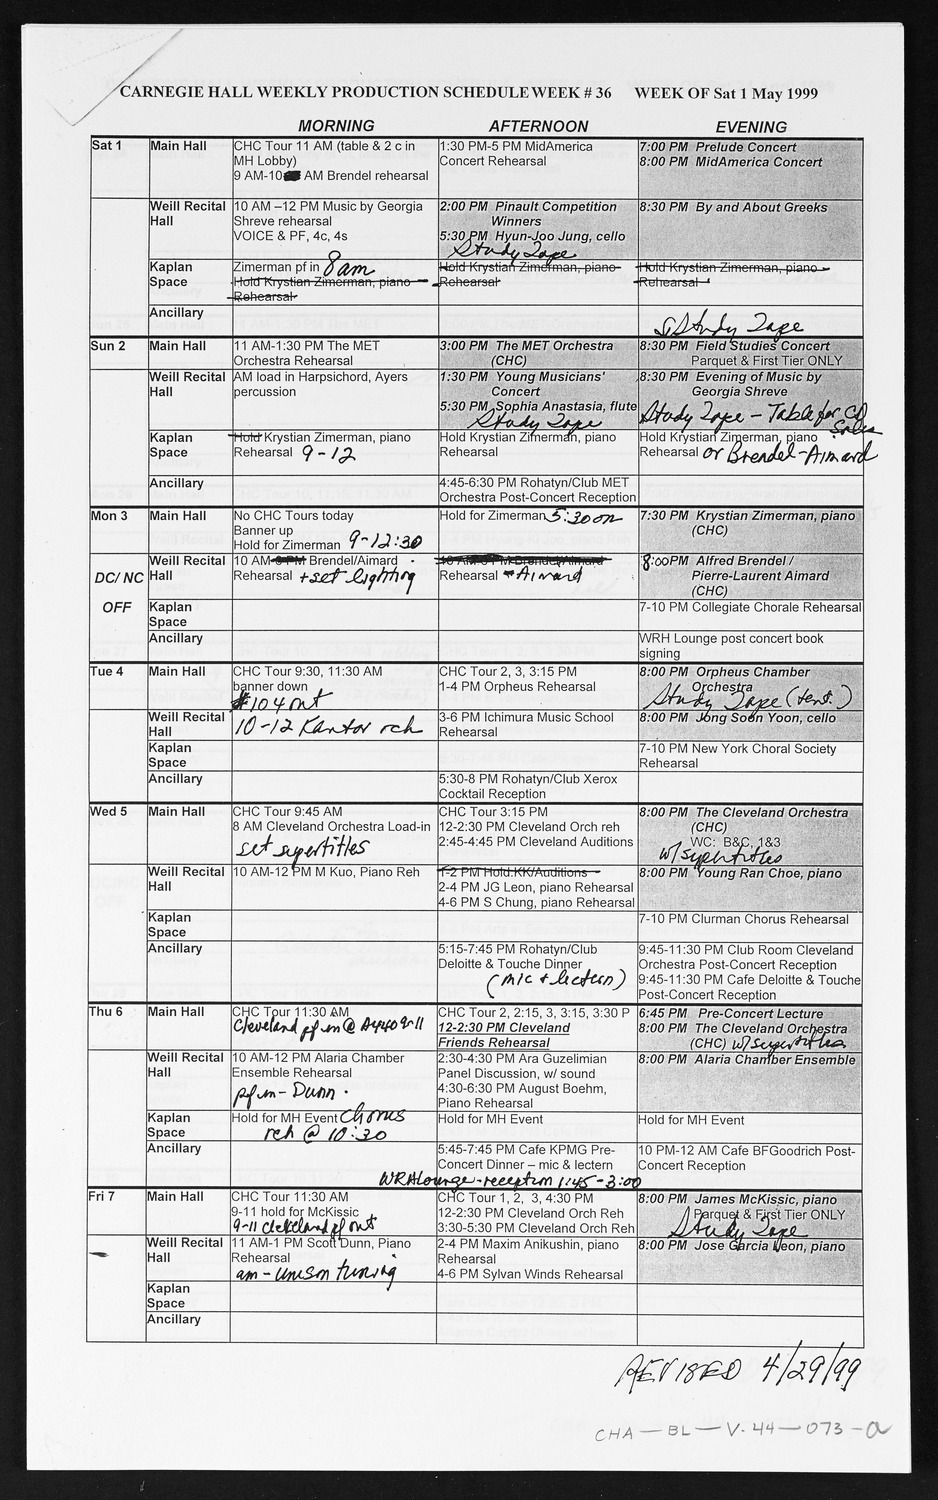 CARNEGIE HALL WEEKLY PRODUCTION SCHEDULE WEEK # 36 WEEK OF Sat 1 May 1999
MORNING AFTERNOON EVENING
Sat 1
Main Hall
CHC Tour 11 AM (table & 2 c in
MH Lobby)
9 AM-10 AM Brendel rehearsal
1:30 PM-5 PM MidAmerica
Concert Rehearsal
7:00 PM Prelude Concert
8:00 PM MidAmerica Concert
Weill Recital
Hall
10 AM –12 PM Music by Georgia
Shreve rehearsal
VOICE & PF, 4c, 4s
2:00 PM Pinault Competition
Winners
5:30 PM Hyun-Joo Jung, cello
Study Tape
8:30 PM By and About Greeks
Kaplan
Space
Zimerman pf in 8am
Hold Krystian Zimerman, piano
Rehearsal
Hold Krystian Zimerman, piano
Rehearsal
Hold Krystian Zimerman, piano
Rehearsal
Ancillary
Study Tape
Sun 2
Main Hall
11 AM-1:30 PM The MET
Orchestra Rehearsal
3:00 PM The MET Orchestra
(CHC)
8:30 PM Field Studies Concert
Parquet & First Tier ONLY
Weill Recital
Hall
AM load in Harpsichord, Ayers
percussion
1:30 PM Young Musicians'
Concert
5:30 PM Sophia Anastasia, flute
Study Tape
8:30 PM Evening of Music by
Georgia Shreve
Study Tape - Table for CD
Sales
Kaplan
Space
Hold Krystian Zimerman, piano
Rehearsal 9-12
Hold Krystian Zimerman, piano
Rehearsal
Hold Krystian Zimerman, piano
Rehearsal or Brendel-Aimard
Ancillary
4:45-6:30 PM Rohatyn/Club MET
Orchestra Post-Concert Reception
Mon 3
DC/ NC
OFF
Main Hall
No CHC Tours today
Banner up
Hold for Zimerman 9-12:30
Hold for Zimerman 5:30 on
7:30 PM Krystian Zimerman, piano
(CHC)
Weill Recital
Hall
10 AM-5 PM Brendel/Aimard
Rehearsal + set lighting
Rehearsal - Aimard
8:00PM Alfred Brendel /
Pierre-Laurent Aimard
(CHC)
Kaplan
Space
7-10 PM Collegiate Chorale Rehearsal
Ancillary
WRH Lounge post concert book
signing
Tue 4
Main Hall
CHC Tour 9:30, 11:30 AM
banner down
#104 out
CHC Tour 2, 3, 3:15 PM
1-4 PM Orpheus Rehearsal
8:00 PM Orpheus Chamber
Orchestra
Study Tape (tent.)
Weill Recital
Hall
10-12 Kantor reh
3-6 PM Ichimura Music School
Rehearsal
8:00 PM Jong Soon Yoon, cello
Kaplan
Space
7-10 PM New York Choral Society
Rehearsal
Ancillary
5:30-8 PM Rohatyn/Club Xerox
Cocktail Reception
Wed 5
Main Hall
CHC Tour 9:45 AM
8 AM Cleveland Orchestra Load-in
set supertitles
CHC Tour 3:15 PM
12-2:30 PM Cleveland Orch reh
2:45-4:45 PM Cleveland Auditions
8:00 PM The Cleveland Orchestra
(CHC)
WC: B&C, 1&3
w/ supertitles
Weill Recital
Hall
10 AM-12 PM M Kuo, Piano Reh
1-2 PM Hold KK/Auditions
2-4 PM JG Leon, piano Rehearsal
4-6 PM S Chung, piano Rehearsal
8:00 PM Young Ran Choe, piano
Kaplan
Space
7-10 PM Clurman Chorus Rehearsal
Ancillary
5:15-7:45 PM Rohatyn/Club
Deloitte & Touche Dinner
(mic + lectern)
9:45-11:30 PM Club Room Cleveland
Orchestra Post-Concert Reception
9:45-11:30 PM Cafe Deloitte & Touche
Post-Concert Reception
Thu 6
Main Hall
CHC Tour 11:30 AM
Cleveland pf in @ 9-11
CHC Tour 2, 2:15, 3, 3:15, 3:30 P
12-2:30 PM Cleveland
Friends Rehearsal
6:45 PM Pre-Concert Lecture
8:00 PM The Cleveland Orchestra
(CHC) w/ supertitles
Weill Recital
Hall
10 AM-12 PM Alaria Chamber
Ensemble Rehearsal
pf in - Dunn
2:30-4:30 PM Ara Guzelimian
Panel Discussion, w/ sound
4:30-6:30 PM August Boehm,
Piano Rehearsal
8:00 PM Alaria Chamber Ensemble
Kaplan
Space
Hold for MH Event Chorus
reh @ 10:30
Hold for MH Event
Hold for MH Event
Ancillary
5:45-7:45 PM Cafe KPMG Pre-
Concert Dinner – mic & lectern
WRH Lounge - reception 1:45-3:00
10 PM-12 AM Cafe BFGoodrich Post-
Concert Reception
Fri 7
Main Hall
CHC Tour 11:30 AM
9-11 hold for McKissic
9-11 Cleveland pf out
CHC Tour 1, 2, 3, 4:30 PM
12-2:30 PM Cleveland Orch Reh
3:30-5:30 PM Cleveland Orch Reh
8:00 PM James McKissic, piano
Parquet & First Tier ONLY
Study Tape
Weill Recital
Hall
11 AM-1 PM Scott Dunn, Piano
Rehearsal
am - unison tuning
2-4 PM Maxim Anikushin, piano
Rehearsal
4-6 PM Sylvan Winds Rehearsal
8:00 PM Jose Garcia Leon, piano
Kaplan
Space
Ancillary
REVISED 4/29/99
CHA - BL - V.44 - 073 - a